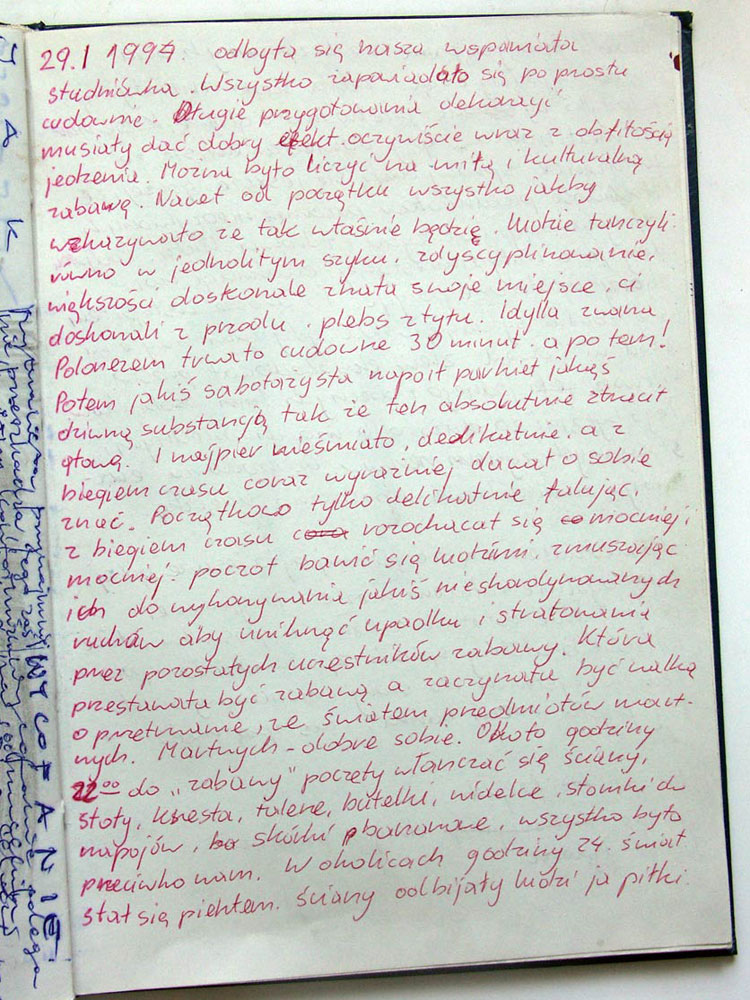 29.I 1994. odbyła się nasza wspaniała
studniówka. Wszystko zapowiadało się po prostu
cudownie. Długie przygotowania dekoracji
musiały dać dobry efekt oczywiście wraz z obfitością
jedzenia. Można było liczyć na miłą i kulturalną
zabawę. Nawet od początku wszystko jakby
wskazywało że tak właśnie będzie. Ludzie tańczyli
równo w jednolitym szyku, zdyscyplinowanie,
większości doskonale znała swoje miejsce, ci
doskonali z przodu, plebs z tyłu. Idylla zwana
Polonezem trwało cudowne 30 minut. a po tem!
Potem jakiś sabotażysta napoił parkiet jakąś
dziwną substancją tak że ten absolutnie stracił
głową. I najpier nieśmiało, dedikatnie, a z
biegiem czasu coraz wyraźniej dawał o sobie
znać. Początkowo tylko delikatnie falując,
z biegiem czasu rozochacał się mocniej i
mocniej. począł bawić się ludźmi, zmuszając
ich do wykonywania jakiś nieskordynowanych
ruchów aby uniknąć upadku i stratowania
przez pozostałych uczęstników zabawy. Która
przestawała być zabawą a zaczynała być walką
o przetrwanie, ze światem przedmiotów mart-
nych. Martnych - dobre sobie. Około godziny
22⁰⁰ do „zabawy" poczęły włanczać się ściany,
stoły, krzesła, talerze, butelki, widelce, słomki do
napojów, skórki bananowe, wszystko było
przeciwko nam. W okolicach godziny 24. świat
stał się piekłem. ściany odbijały ludzi ja piłki.
JAK
WYCOFANIE